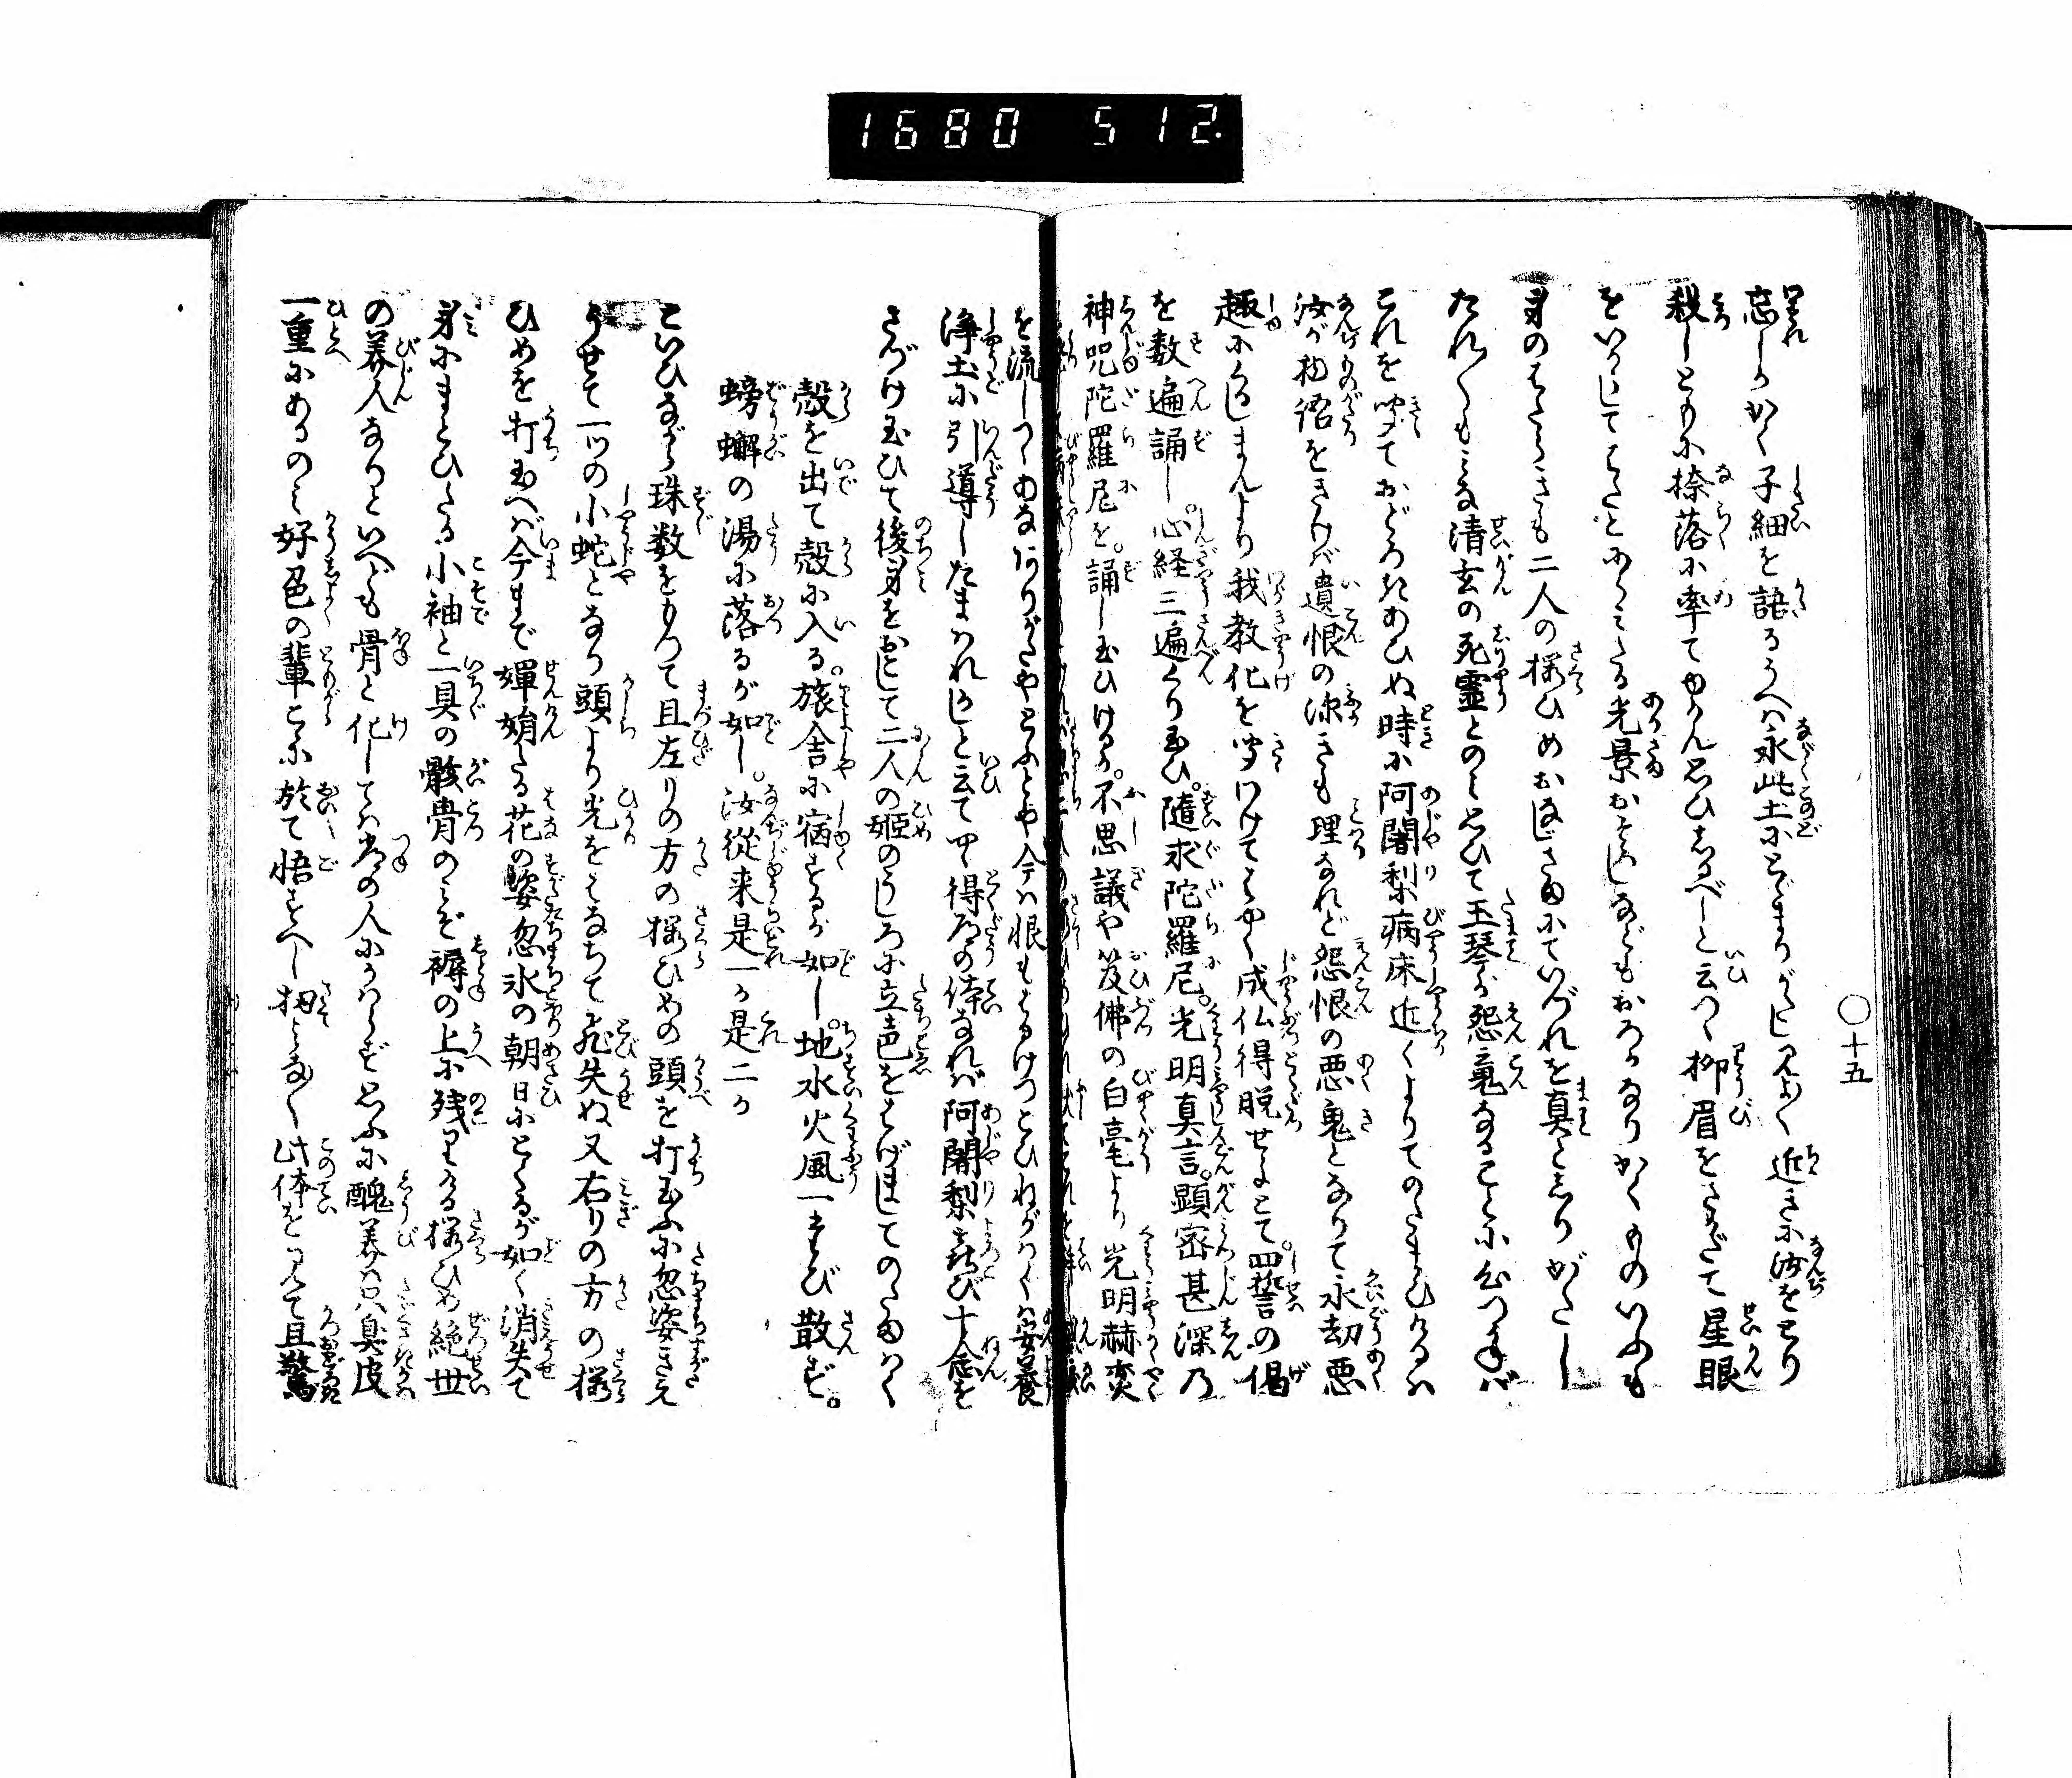 1680 512.
○十五
忘しかく子細を語るうへハ永此土にとゞまりがたし見よ〳〵近きに汝をとり
殺しともに捺落に率てゆかん思ひしるべしと云つゝ柳眉をさかだて星眼
をいからしてはたとにらみたる光景おそろしなどもおろかなりかくものいふも
身のはたらきも二人の桜ひめおなじさまにていづれを真としりがたし
たれ〳〵もみな清玄の死霊とのみ思ひて玉琴が怨竟なることに心つかねバ
これを聞ておどろきあひぬ時に阿闍梨病床近くよりてのたまひけるハ
汝が物語をきけば遺恨の深きも理なれど怨恨の悪鬼となりて永劫悪
趣にくるしまんより我教化を聞わけてはやく成仏得脱せよとて。四誓の偈
を数遍誦し。心経三遍くり玉ひ。随求陀羅尼。光明真言。顕密甚深乃
神咒陀羅尼を。誦し玉ひけるが。不思議や笈佛の白毫より光明赫奕
を流しつゝあなありがたやとふとや今ハ恨もはるけつとひねがハくハ安養
浄土に引導したまハれかしと云て中得道の侍なれば阿闍梨喜び十念を
さづけ玉ひて後身をおとして二人の姫のうしろに立声をはげましてのたまハく
殻を出て殻に入る。旅舎に宿するが如し。地水火風一まび散ず。
螃蠏の湯に落るが如し。汝從来是一か是二か
といひながら珠数をもつて且左りの方の桜ひめの頭を打玉ふに忽姿きえ
うせて一ツの小蛇となり頭より光をはなちて飛失ぬ又右りの方の桜
ひめを打玉へば今まで嬋娟たる花の姿忽氷の朝日にとくるが如く消失て
身にまとひたる小袖と一具の骸骨のみぞ褥の上に残りける桜ひめ絶世
の美人なりといへども骨と化してハ常の人にかハらず思ふに醜美ハ只臭皮
一重にあるのみ好色の輩こゝに於て悟すべし扨みな〳〵此体を見て且驚